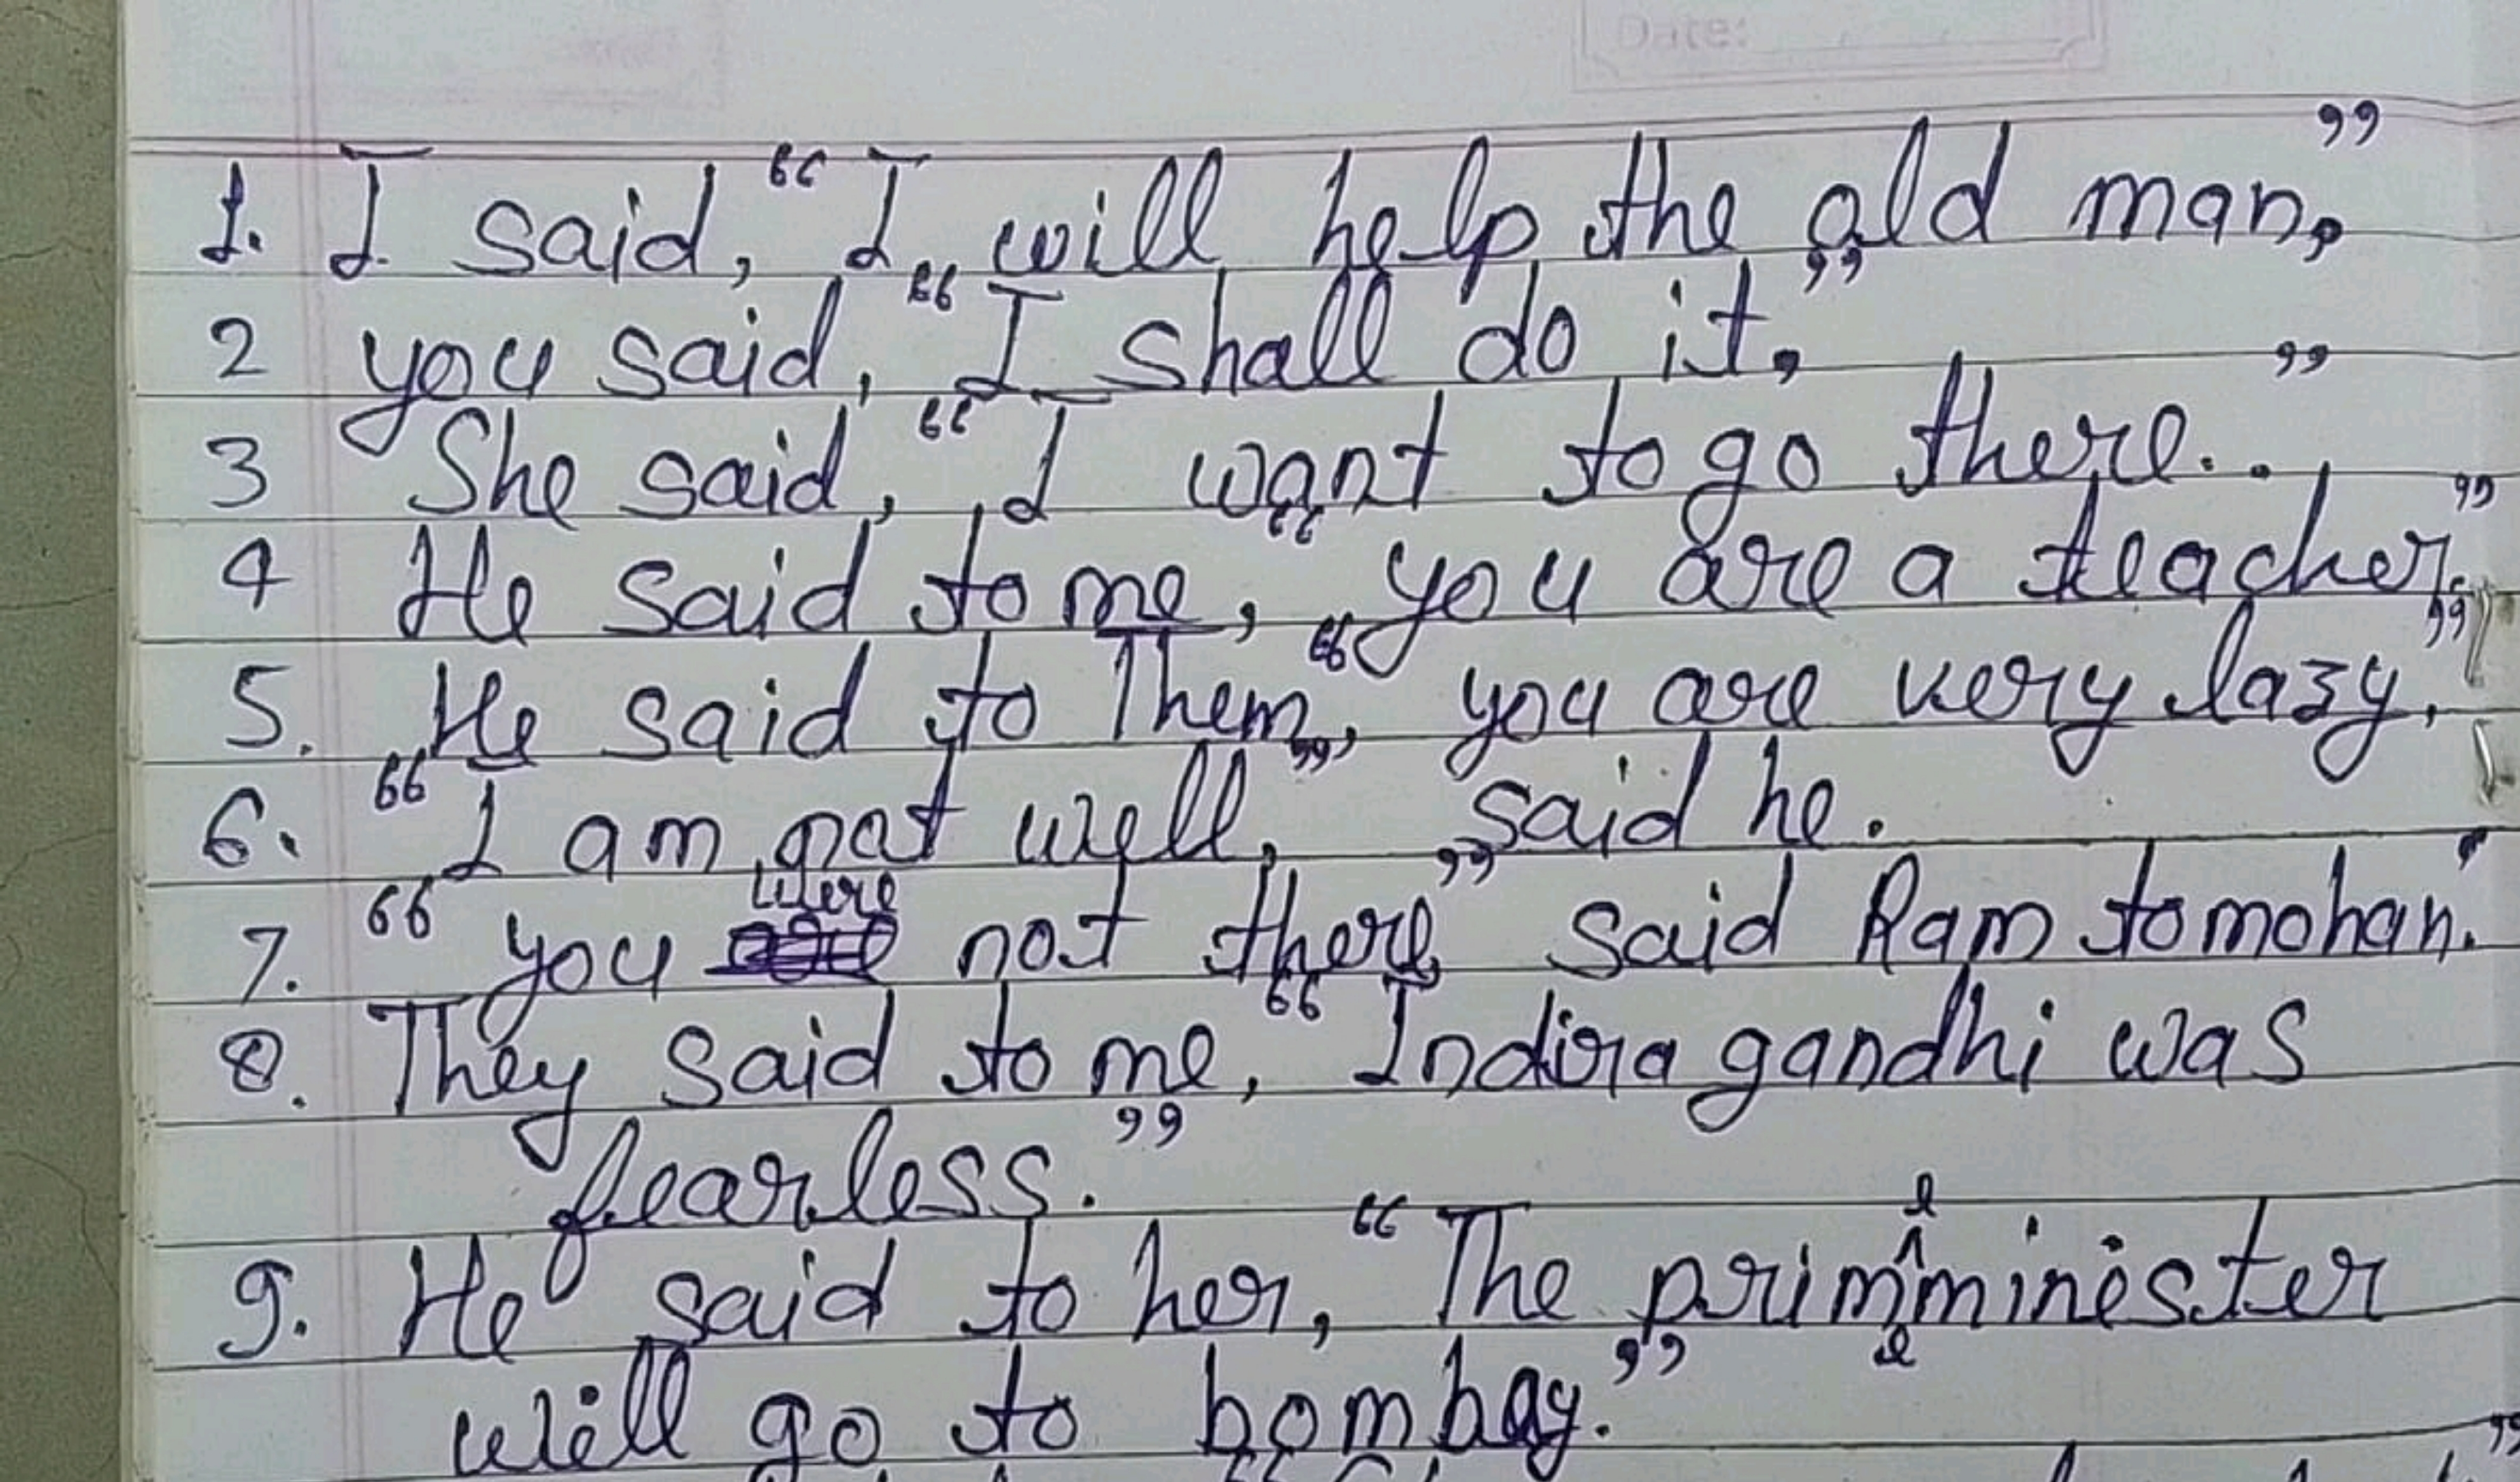 Date:
1. I said, "I will help the old man,"
2 you said, "I shall do it,"
3 She said, "I want to go there.."
4 He said to me, "you are a teacher."
5. He said to Them, "you are very lazy,"
6. "I am not well," said he.
7. "you were not there," said Ram to mohan."
8. They said to me, "Indira gandhi was
fearless."
9. He said to her, "The prime minister
will go to bombay."